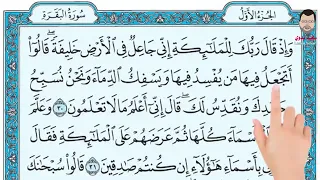 الجُزْءُ الأَوَّلُ
سُورَةُ البَقَرَةِ
وَإِذْ قَالَ رَبُّكَ لِلْمَلَٰٓئِكَةِ إِنِّى جَاعِلٌ فِى ٱلْأَرْضِ خَلِيفَةً ۖ قَالُوٓا۟
أَتَجْعَلُ فِيهَا مَن يُفْسِدُ فِيهَا وَيَسْفِكُ ٱلدِّمَآءَ وَنَحْنُ نُسَبِّحُ
وَنُقَدِّسُ لَكَ ۖ قَالَ إِنِّىٓ أَعْلَمُ مَا لَا تَعْلَمُونَ ٣٠ وَعَلَّمَ
كُلَّهَا ثُمَّ عَرَضَهُمْ عَلَى ٱلْمَلَٰٓئِكَةِ فَقَالَ
بِأَسْمَآءِ هَٰٓؤُلَآءِ إِن كُنتُمْ صَٰدِقِينَ ٣١ قَالُوا۟ سُبْحَٰنَكَ